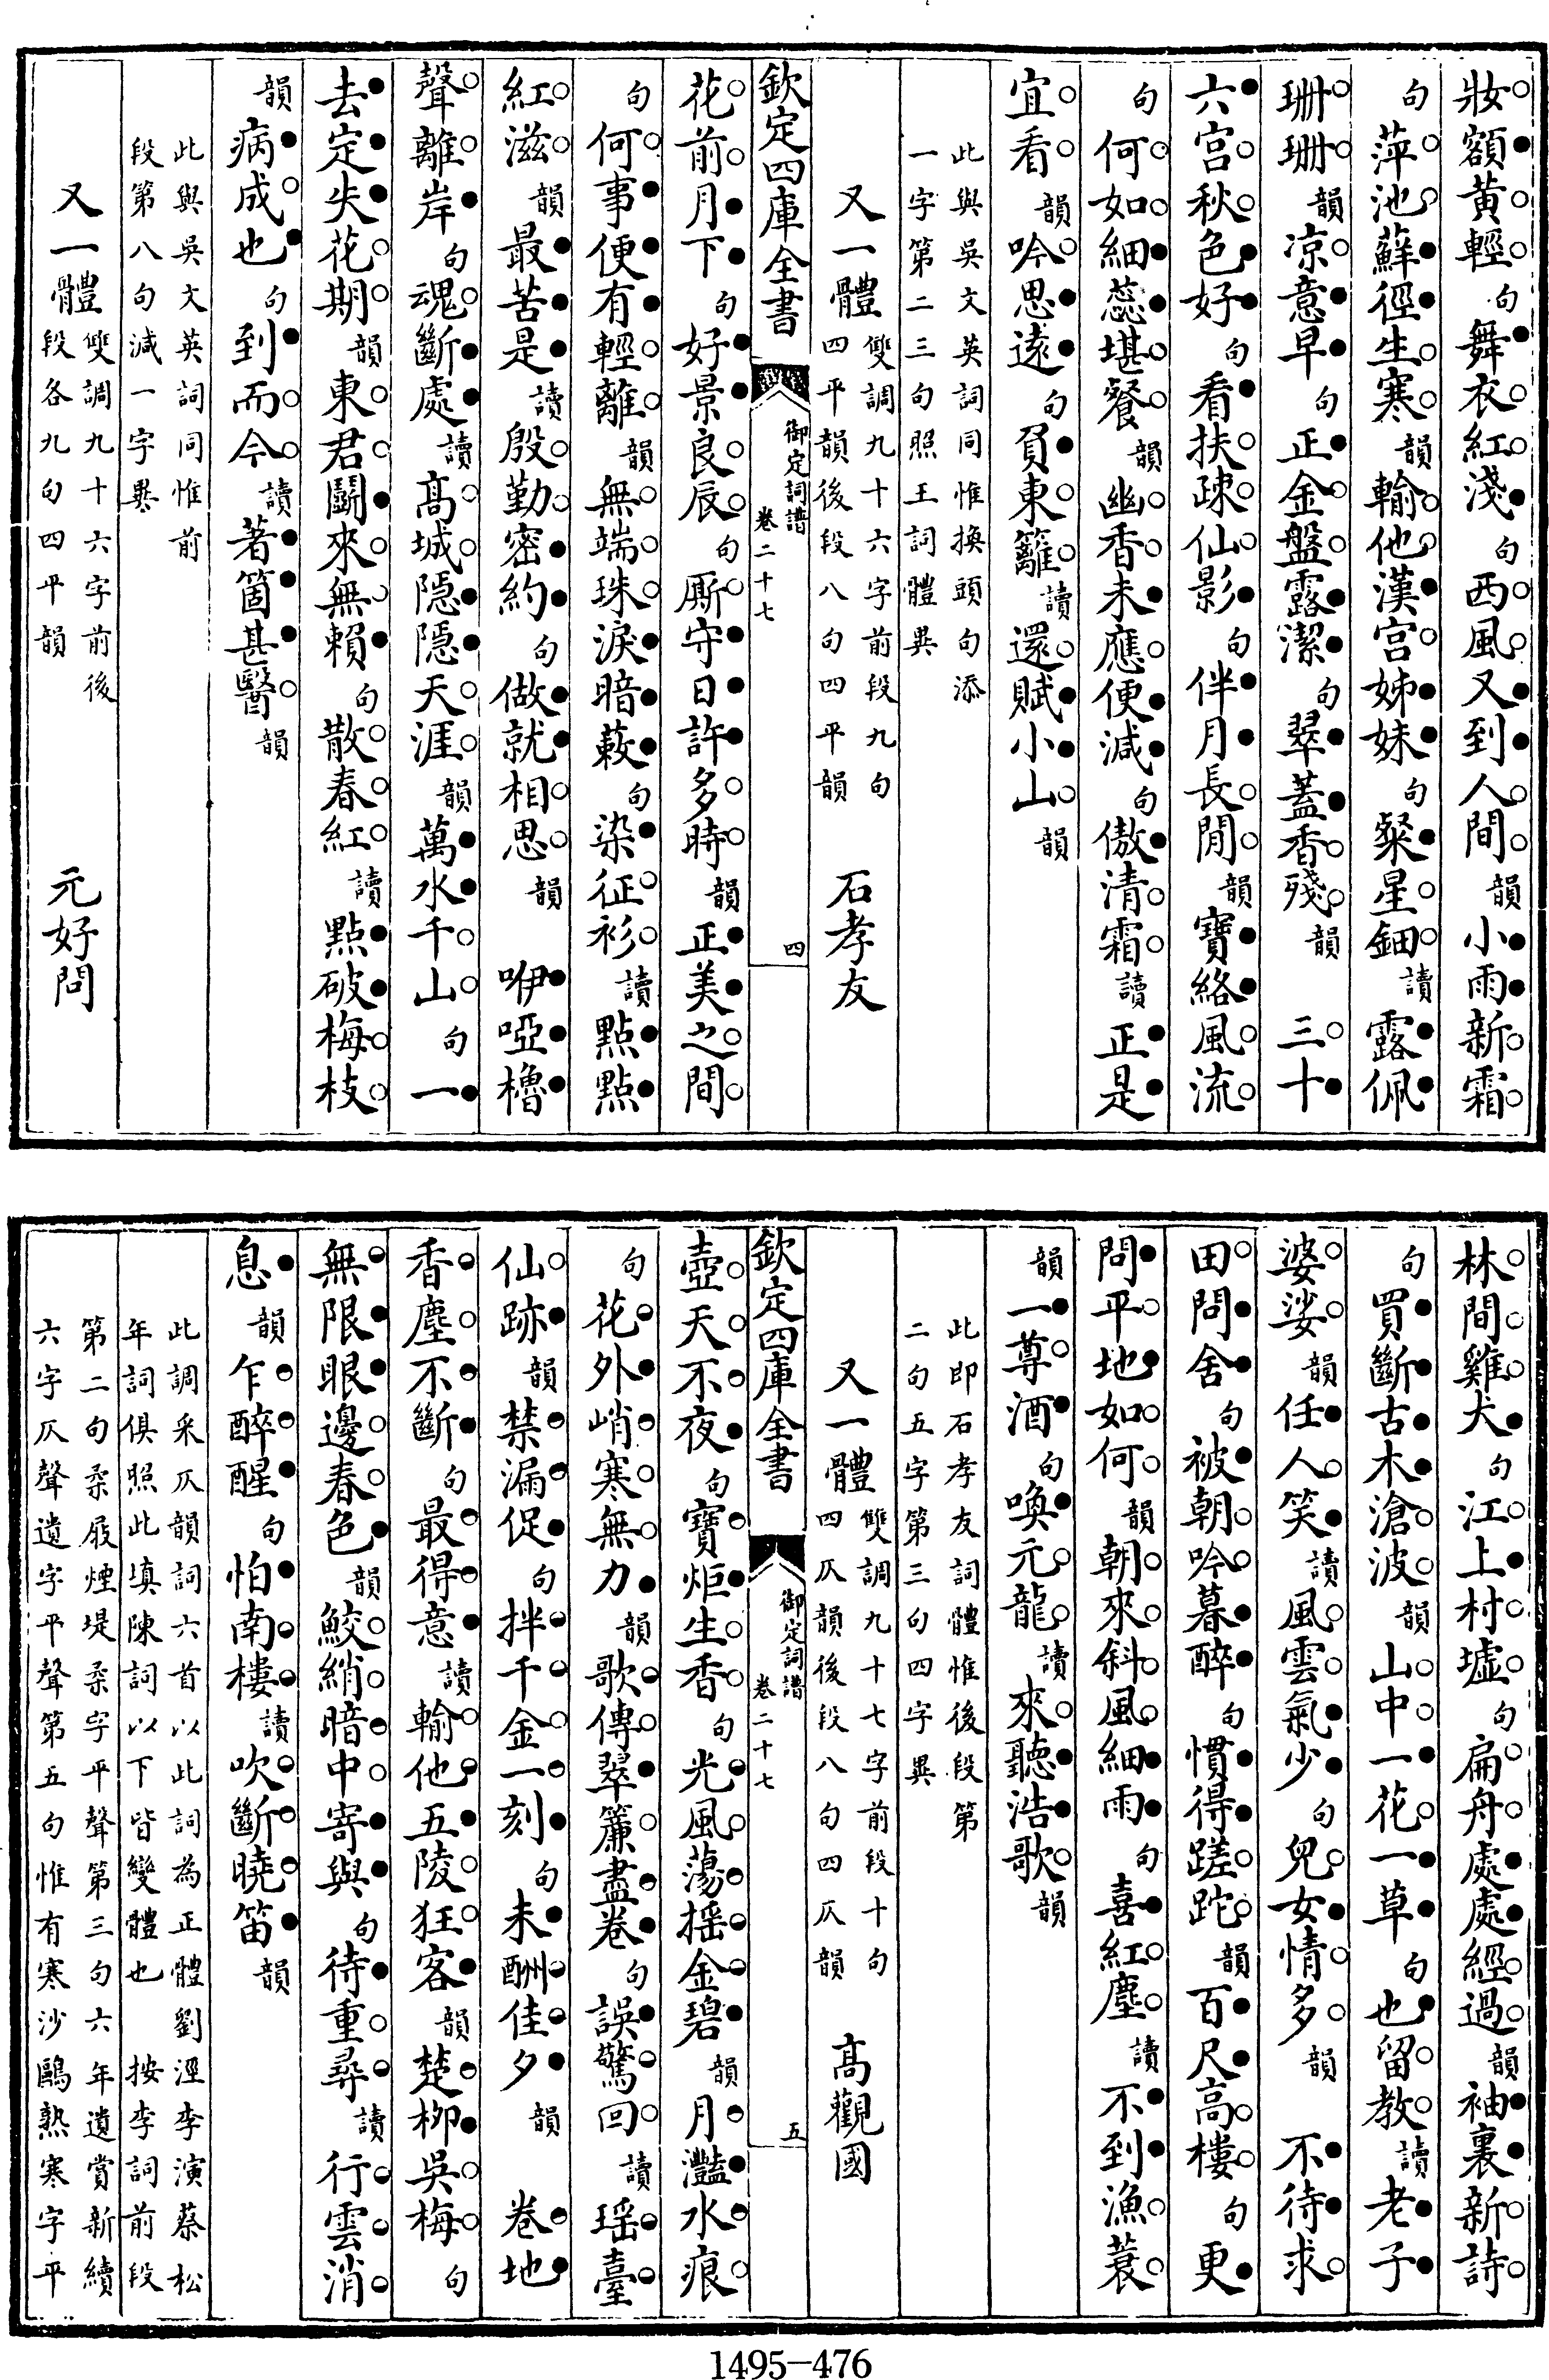 妝額黃輕句舞衣紅淺句西風又到人間韻小雨新霜
句萍池蘚徑生寒韻輸他漢宮姊妹句粲星鈿讀露佩
珊珊韻凉意早句正金盤露潔句翠蓋香殘韻 三十
六宮秋色好句看扶疎仙影句伴月長閒韻寶絡風流
句何如細蕊堪餐韻幽香未應便減句傲清霜讀正是
宜看韻吟思遠句負東籬讀還賦小山韻
此與吳文英詞同惟換頭句添
一字第二三句照王詞體異
又一體 雙調九十六字前段九句
四平韻後段八句四平韻 石孝友
欽定四庫全書 御定詞譜 卷二十七 四
花前月下句好景良辰句厮守日許多時韻正美之間
句何事便有輕離韻無端珠淚暗蔌句染征衫讀點點
紅滋韻最苦是讀殷勤密約句做就相思韻 咿啞櫓
聲離岸句魂斷處讀高城隱隱天涯韻萬水千山句一
去定失花期韻東君鬬來無賴句散春紅讀點破梅枝
韻病成也句到而今讀著箇甚醫韻
此與吳文英詞同惟前
段第八句減一字異
又一體 雙調九十六字前後
段各九句四平韻 元好問
林間雞犬句江上村墟句扁舟處處經過韻袖裏新詩
句買斷古木滄波韻山中一花一草句也留教讀老子
婆娑韻任人笑讀風雲氣少句兒女情多韻 不待求
田問舍句被朝吟暮醉句慣得蹉跎韻百尺高樓句更
問平地如何韻朝來斜風細雨句喜紅塵讀不到漁蓑
韻一尊酒句喚元龍讀來聽浩歌韻
此即石孝友詞體惟後段第
二句五字第三句四字異
又一體 雙調九十七字前段十句
四仄韻後段八句四仄韻 高觀國
欽定四庫全書 御定詞譜 卷二十七 五
壺天不夜句寶炬生香句光風蕩搖金碧韻月灩水痕
句花外峭寒無力韻歌傳翠簾盡卷句誤驚回讀瑶臺
仙跡韻禁漏促句拌千金一刻句未酬佳夕韻 卷地
香塵不斷句最得意讀輸他五陵狂客韻楚栁吳梅句
無限眼邊春色韻鮫綃暗中寄與句待重尋讀行雲消
息韻乍醉醒句怕南樓讀吹斷曉笛韻
此調采仄韻詞六首以此詞為正體劉涇李演蔡松
年詞俱照此填陳詞以下皆變體也 按李詞前段
第二句柔屐煙堤柔字平聲第三句六年遺賞新續
六字仄聲遺字平聲第五句惟有寒沙鷗熟寒字平
1495—476